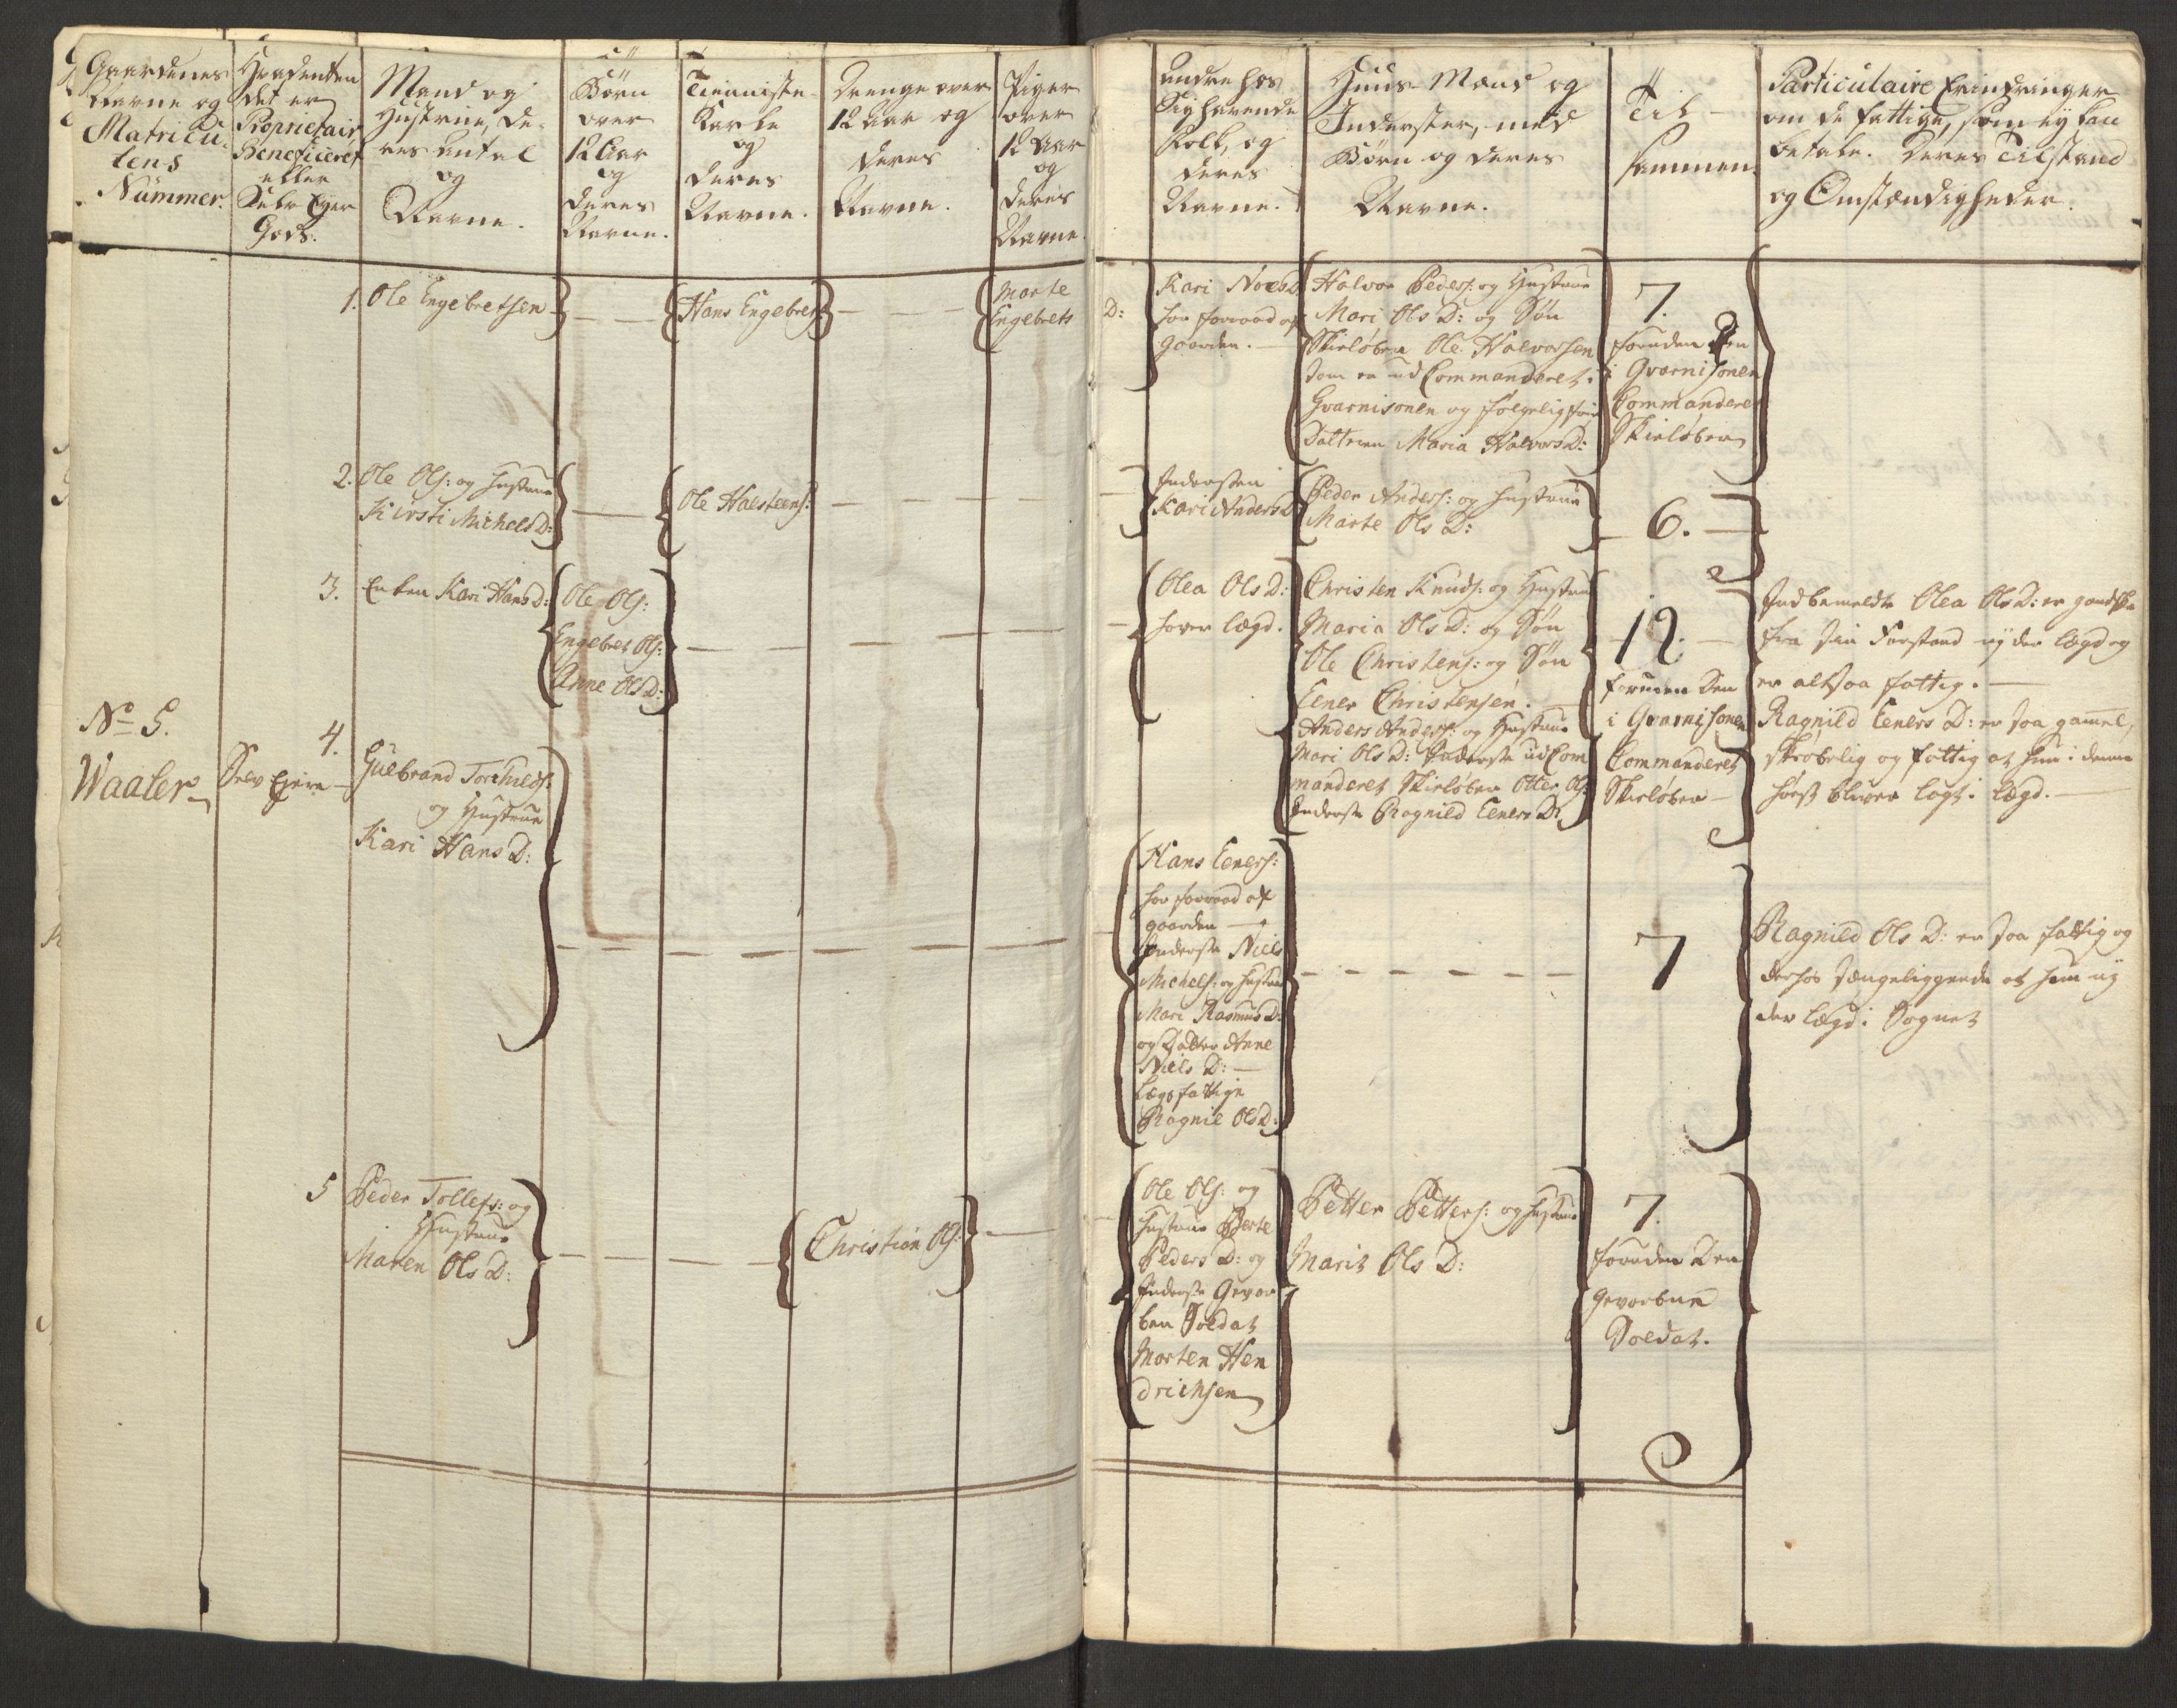 Gaardenes
Navne og
Matricu-
lens
Nummer.
Hvadenten
det er
Proprietair
Beneficeret
eller
Selv Eyer
Gods.
Mand og
Hustrue, de-
res Antal
og
Navne.
Børn
over
12 Aar
og
deres
Navne.
Tienniste-
Karle
og
deres
Navne.
Drenge over
12 Aar og
deres
Navne.
Piger
over
12 Aar
og
deres
Navne.
Andre hos
Sig havende
Folk, og
deres
Navne.
Huus-Mænd og
Inderster, med
Børn og deres
Navne.
Til-
sammen.
Particulaire Erindringer
om de fattige, som ej kan
betale. Deres Tilstand
og Omstændigheder.
No 5.
Waaler
Selv Ejere
1. Ole Engebretsen
Hans Engebrets:
Marte
Engebrets
D:
Kari Noes D
har forraad af
gaarden.
Halvor Peders: og Hustrue
Mari Ols D: og Søn
Skieløber Ole Halvorsen
som er ud Commanderet i
Gvarnisonen og
Datteren Maria Halvors D:
7.
foruden Den
i Gvarnisonen
Commanderet
Skieløber
2. Ole Ols: og Hustrue
Kirsti Michels D:
Ole Halsteens:
Indersten
Kari Anders D
Peder Anders: og Hustrue
Marte Ols D:
6.
3. Enken Kari Hans D:
Ole Ols:
Engebret Ols:
Anne Ols D:
Olea Ols D:
haver lægd.
Christen Knuds: og Hustrue
Maria Ols D: og Søn
Ole Christens: og Søn
Eener Christensen.
Anders Anders: og Hustrue
Mari Ols D: Inderste ud Com
manderet Skieløber Otter Ols:
Inderste Ragnild Eeners D:
12.
foruden Den
i Gvarnisonen
Commanderet
Skieløber
Indbemeldte Olea Ols D: er gandske
fra sin Forstand nyder lægd og
er altsaa fattig.
Ragnild Eeners D: er saa gamel,
skrøbelig og fattig at hun i denne
høst bliver lagt i lægd.
4.
Gulbrand Torchilds:
og Hustrue
Kari Hans D:
Hans Eeners:
har forraad af
gaarden
Inderste Niels
Michels: og Hustrue
Mari Rasmus D:
og Datter Anne
Niels D:
Lægdsfattige
Ragnil Ols D:
7
Ragnild Ols D: er saa fattig og
derhos sængeliggende at hun ny
der lægd i Sognet
5 Peder Tollefs: og
Hustrue
Maren Ols D:
Christian Ols:
Ole Ols: og
Hustrue Berte
Peders D: og
Inderste Gevor
ben Soldat
Morten Hen
drichsen
Petter Petters: og Hustrue
Marit Ols D:
7.
foruden Den
Gevorbne
Soldat.